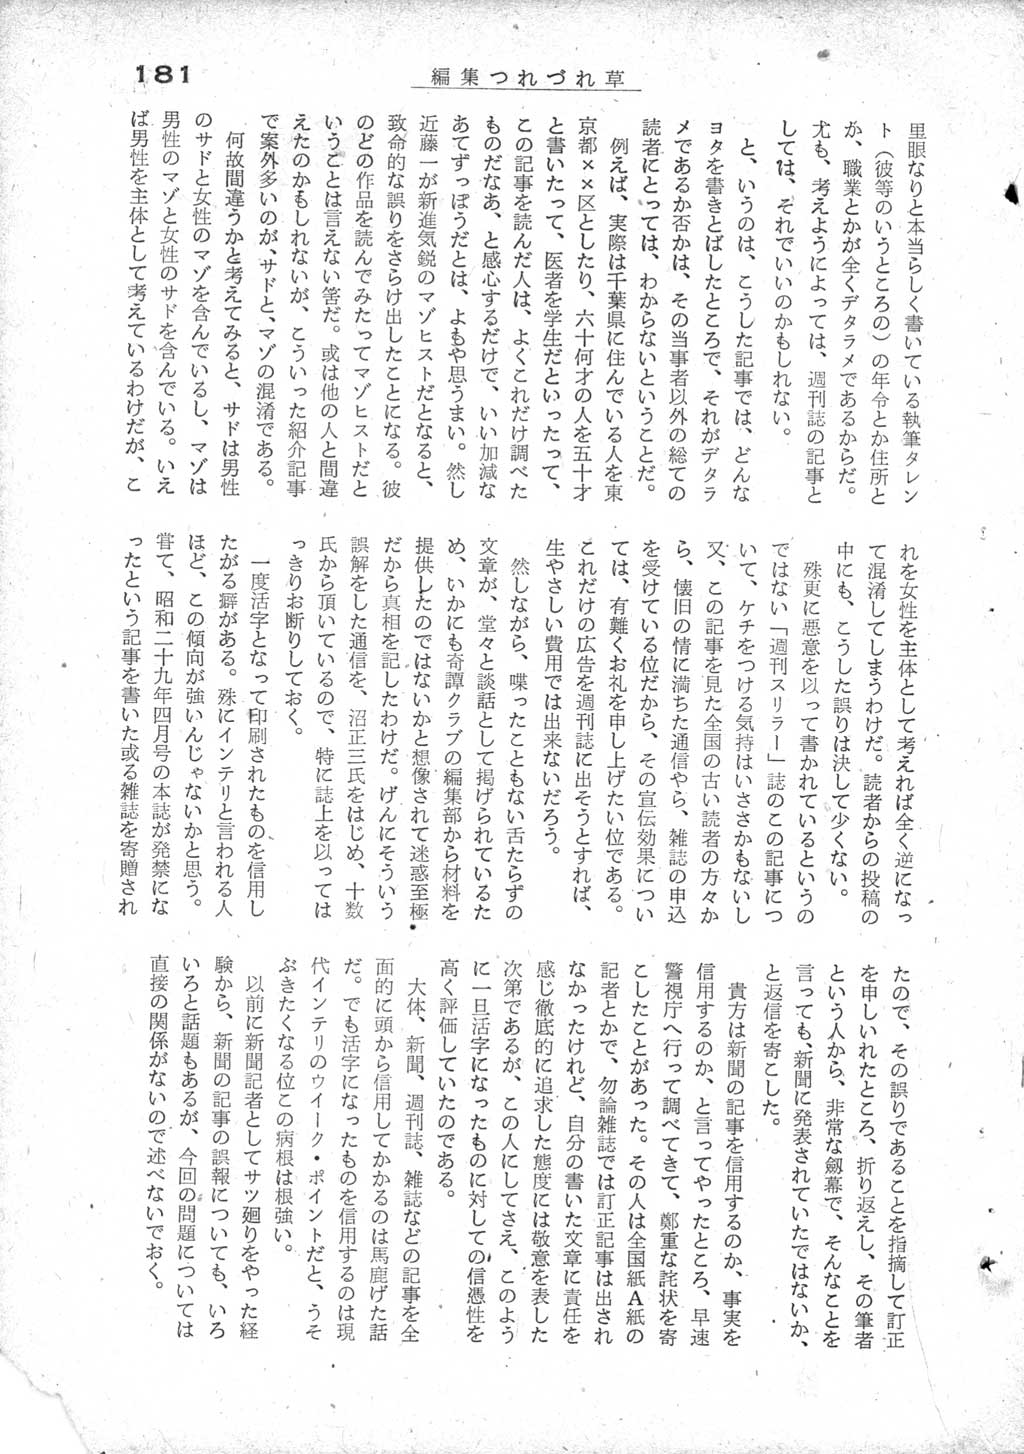 181
編集つれづれ草
里眼なりと本当らしく書いている執筆タレン
ト（彼等のいうところの）の年令とか住所と
か、職業とかが全くデタラメであるからだ。
尤も、考えようによっては、週刊誌の記事と
しては、それでいいのかもしれない。
と、いうのは、こうした記事では、どんな
ヨタを書きとばしたところで、それがデタラ
メであるか否かは、その当事者以外の総ての
読者にとっては、わからないということだ。
例えば、実際は千葉県に住んでいる人を東
京都××区としたり、六十何才の人を五十才
と書いたって、医者を学生だといったって、
この記事を読んだ人は、よくこれだけ調べた
ものだなあ、と感心するだけで、いい加減な
あてずっぽうだとは、よもや思うまい。然し
近藤一が新進気鋭のマゾヒストだとなると、
致命的な誤りをさらけ出したことになる。彼
のどの作品を読んでみたってマゾヒストだと
いうことは言えない筈だ。或は他の人と間違
えたのかもしれないが、こういった紹介記事
で案外多いのが、サドと、マゾの混淆である。
何故間違うかと考えてみると、サドは男性
のサドと女性のマゾを含んでいるし、マゾは
男性のマゾと女性のサドを含んでいる。いえ
ば男性を主体として考えているわけだが、こ
れを女性を主体として考えれば全く逆になっ
て混淆してしまうわけだ。読者からの投稿の
中にも、こうした誤りは決して少くない。
殊更に悪意を以って書かれているというの
ではない「週刊スリラー」誌のこの記事につ
いて、ケチをつける気持はいささかもないし
又、この記事を見た全国の古い読者の方々か
ら、懐旧の情に満ちた通信やら、雑誌の申込
を受けている位だから、その宣伝効果につい
ては、有難くお礼を申し上げたい位である。
これだけの広告を週刊誌に出そうとすれば、
生やさしい費用では出来ないだろう。
然しながら、喋ったこともない舌たらずの
文章が、堂々と談話として掲げられているた
め、いかにも奇譚クラブの編集部から材料を
提供したのではないかと想像されて迷惑至極
だから真相を記したわけだ。げんにそういう
誤解をした通信を、沼正三氏をはじめ、十数
氏から頂いているので、特に誌上を以っては
っきりお断りしておく。
一度活字となって印刷されたものを信用し
たがる癖がある。殊にインテリと言われる人
ほど、この傾向が強いんじゃないかと思う。
嘗て、昭和二十九年四月号の本誌が発禁にな
ったという記事を書いた或る雑誌を寄贈され
たので、その誤りであることを指摘して訂正
を申しいれたところ、折り返えし、その筆者
という人から、非常な劔幕で、そんなことを
言っても、新聞に発表されていたではないか、
と返信を寄こした。
貴方は新聞の記事を信用するのか、事実を
信用するのか、と言ってやったところ、早速
警視庁へ行って調べてきて、鄭重な詫状を寄
こしたことがあった。その人は全国紙A紙の
記者とかで、勿論雑誌では訂正記事は出され
なかったけれど、自分の書いた文章に責任を
感じ徹底的に追求した態度には敬意を表した
次第であるが、この人にしてさえ、このよう
に一旦活字になったものに対しての信憑性を
高く評価していたのである。
大体、新聞、週刊誌、雑誌などの記事を全
面的に頭から信用してかかるのは馬鹿げた話
だ。でも活字になったものを信用するのは現
代インテリのウイーク・ポイントだと、うそ
ぶきたくなる位この病根は根強い。
以前に新聞記者としてサツ廻りをやった経
験から、新聞の記事の誤報についても、いろ
いろと話題もあるが、今回の問題については
直接の関係がないので述べないでおく。